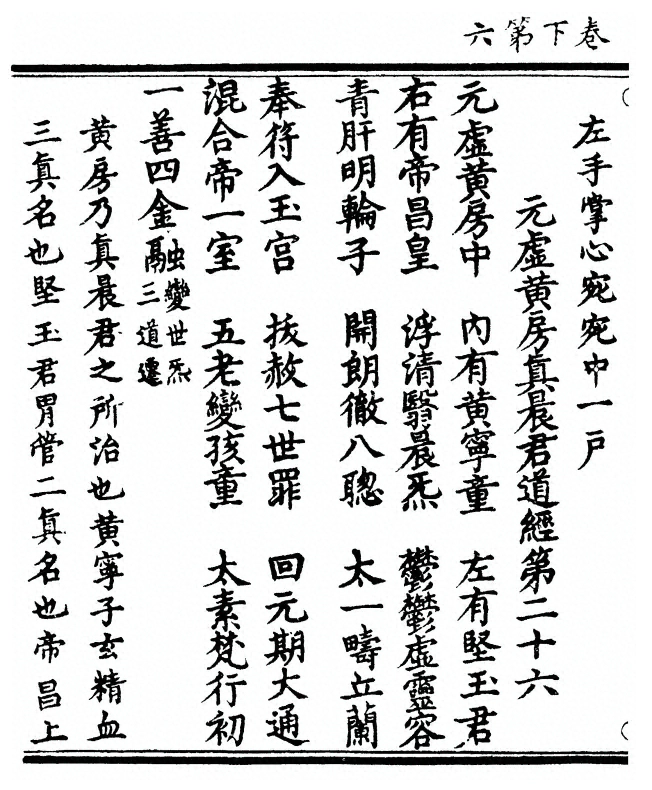 卷下第六
左手掌心宛宛中一尸
元虛黄房真晨君道經第二十六
元虛黄房中　內有黄寧童　左有堅玉君
右有帝昌皇　浮清翳晨炁　鬱鬱虛靈容
青肝明輪子　開朗徹八聰　太一疇丘蘭
奉符入玉宮　拔赦七世罪　回元期大通
混合帝一室　五老變孩童　太素梵行初
一善四金融變世炁
融三道遷
黄房乃真晨君之所治也黄寧子玄精血
三真名也堅玉君胃管二真名也帝昌上